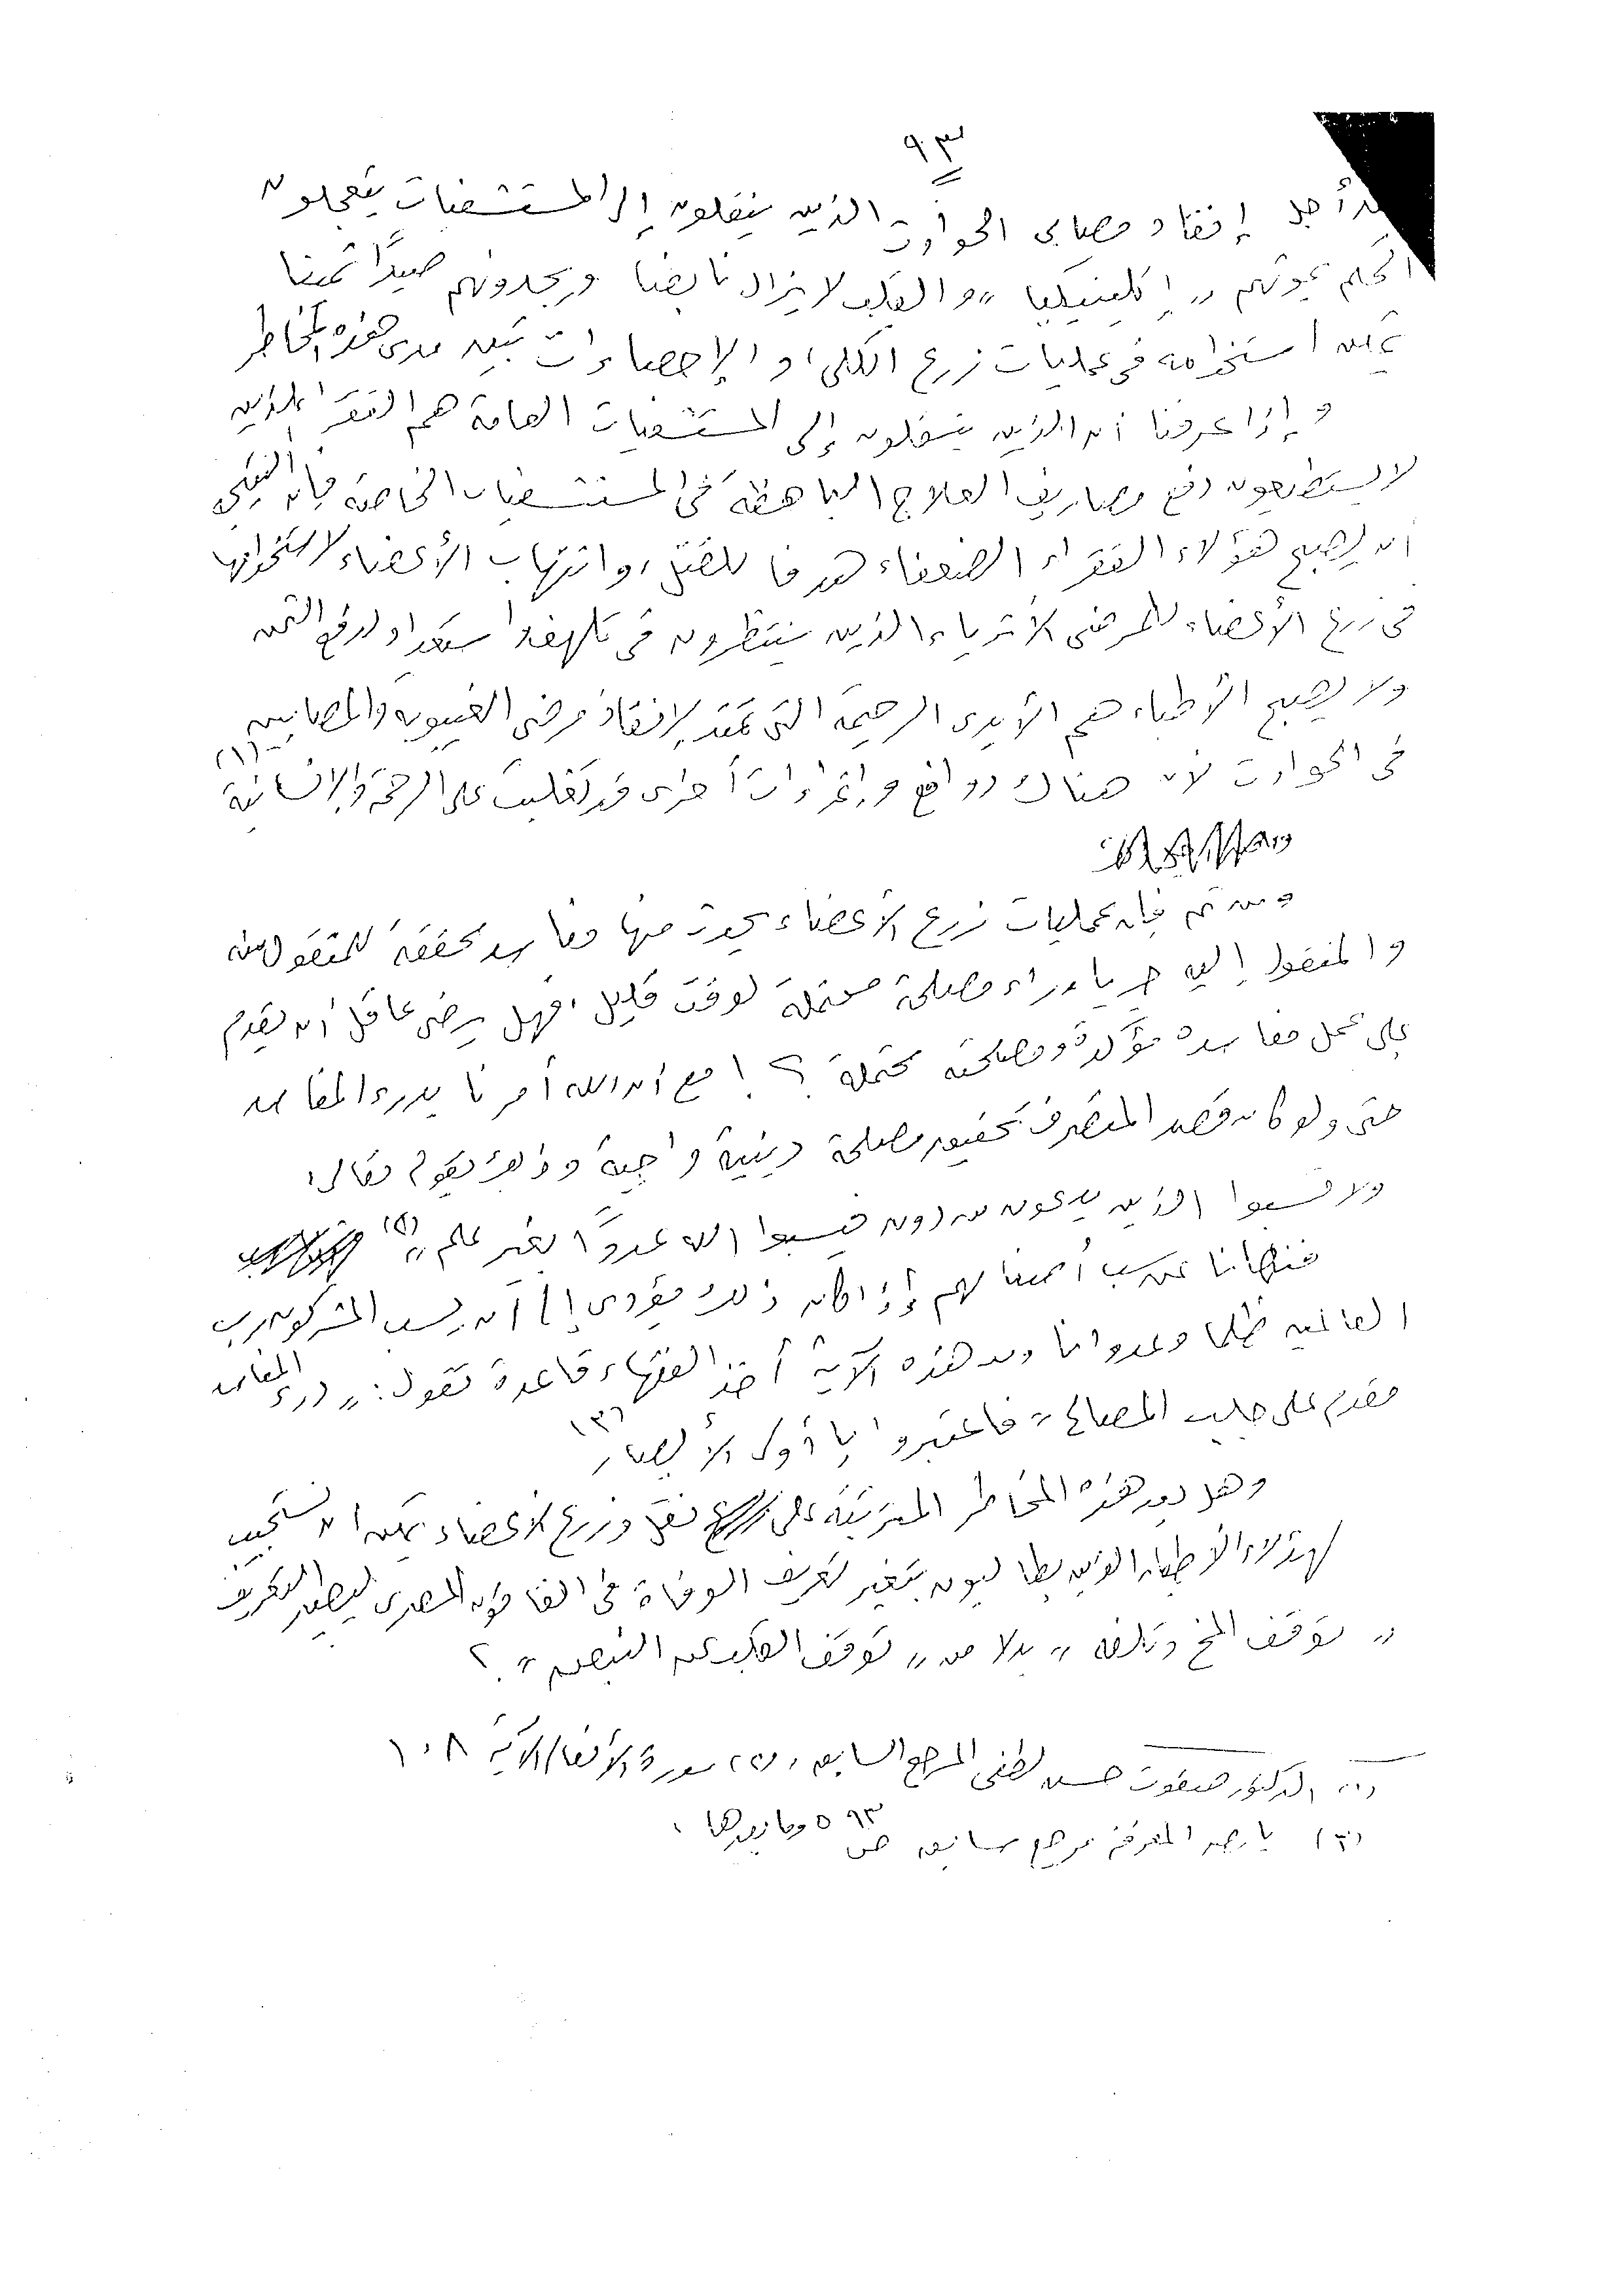 ٩٣
من أجل إنقاذ مصابى الحوادث الذين ينقلون إلى المستشفيات يتعجلون
الحكم بموتهم ,, إكلينيكيا ,, والقلب لا يزال نابضا ويجدونهم صيدًا ثمينا
يمكن استخدامه فى عمليات زرع الكلى، والإحصاءات تبين مدى هذه المخاطر
وإذا عرفنا أن الذين ينقلون إلى المستشفيات العامة هم الفقراء الذين
لا يستطيعون دفع مصاريف العلاج الباهظة فى المستشفيات الخاصة فإن
أن يصبح هؤلاء الفقراء الضعفاء هدفا للقتل، وانتهاب الأعضاء لاستخدامها
فى زرع الأعضاء للمرضى الأثرياء الذين ينتظرون فى تلهف واستعداد لدفع الثمن
ولا يصبح الأطباء هم الأيدى الرحيمة التى تمتد لإنقاذ مرضى الغيبوبة والمصابين
فى الحوادث لأن هناك دوافع وإغراءات أخرى قد تغلبت على الرحمة والإنسانية (١)
ومن ثم فإن عمليات زرع الأعضاء يحدث منها مفاسد محققة للمنقول منه
والمنقول إليه جريا وراء مصلحة محتملة لوقت قليل، فهل يرضى عاقل أن يقدم
على عمل مفاسده مؤكدة ومصلحته محتملة ؟! مع أن الله أمرنا بدرء المفاسد
حتى ولو كان قصد المتصرف تحقيق مصلحة دينية واجبة وذلك بقوله تعالى:
ولا تسبوا الذين يدعون من دون فيسبوا الله عدوًا بغير علم ,, (٢)
فنهانا عن سب أصنامهم إذا كان ذلك يؤدى إلى أن يسب المشركون رب
العالمين ظلما وعدوانا ومن هذه الآية أخذ الفقهاء قاعدة تقول: ,, درء المفاسد
مقدم على جلب المصالح ,, فاعتبروا يا أولى الأبصار (٣)
وهل بعد هذه المخاطر المترتبة على نقل وزرع الأعضاء يمكن أن نستجيب
لهؤلاء الأطباء الذين يطالبون بتغيير تعريف الوفاة فى القانون المصرى ليصير التعريف
,, توقف المخ وتلفه ,, بدلا من ,, توقف القلب عن النبض ,, ؟
(١) الدكتور صفوت حسن لطفى المرجع السابق، (٢) سورة الأنعام الآية ١٠٨
(٣) مرجع سابق ص ٥٩٣ وما بعدها .